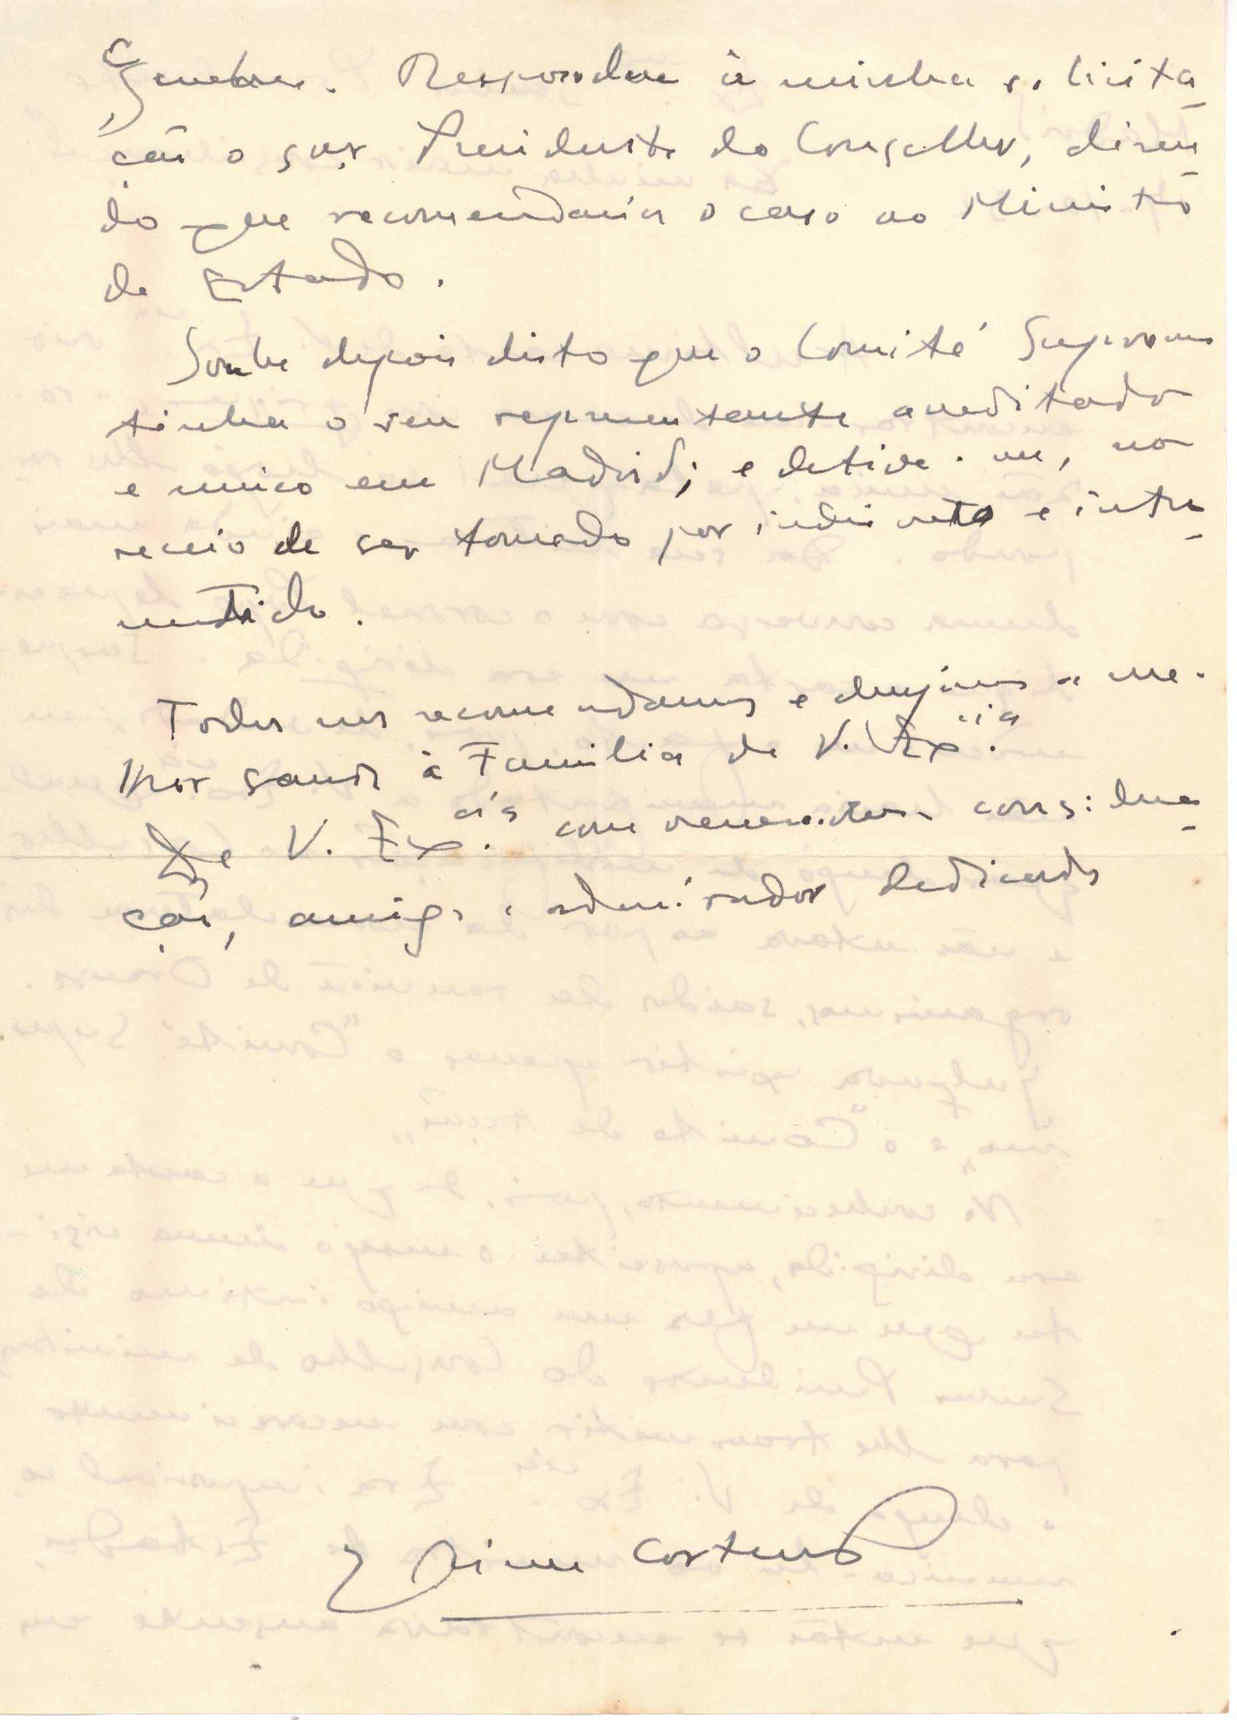 Genebra. Respondeu à minha solicita-
ção o snr. Presidente do Conselho, dizen-
do que recomendaria o caso ao Ministro
de Estado.
Soube depois disto que o Comité Supremo
tinha o seu representante acreditado
e unico em Madrid; e detive-me, no
receio de ser tomado por indiscreto e intro-
metido.
Todos nos recomendamos e desejamos a me-
lhor saude à Familia de V. Ex.cia
De V. Ex.cia com veneradora conside-
ção, amigo e admirador dedicado
Jaime Cortesão